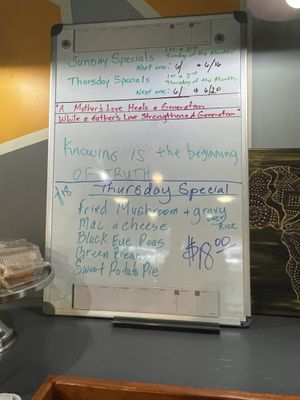 Sunday Specials 1st & 3rd
Sunday of the Month
Next one: 6/ & 6/16
Thursday Specials 1st & 3rd
Thursday of the Month
Next one: 6/ & 6/20
"A Mother's Love Heals a Generation
While a father's Love Strengthens A Generation"
Knowing IS the beginning
OF TRUTH
Thursday Special
Fried Mushroom + gravy
over
Rice
Mac a cheese
Black Eye Peas
Green Beans
Sweet Potato Pie
$18.00